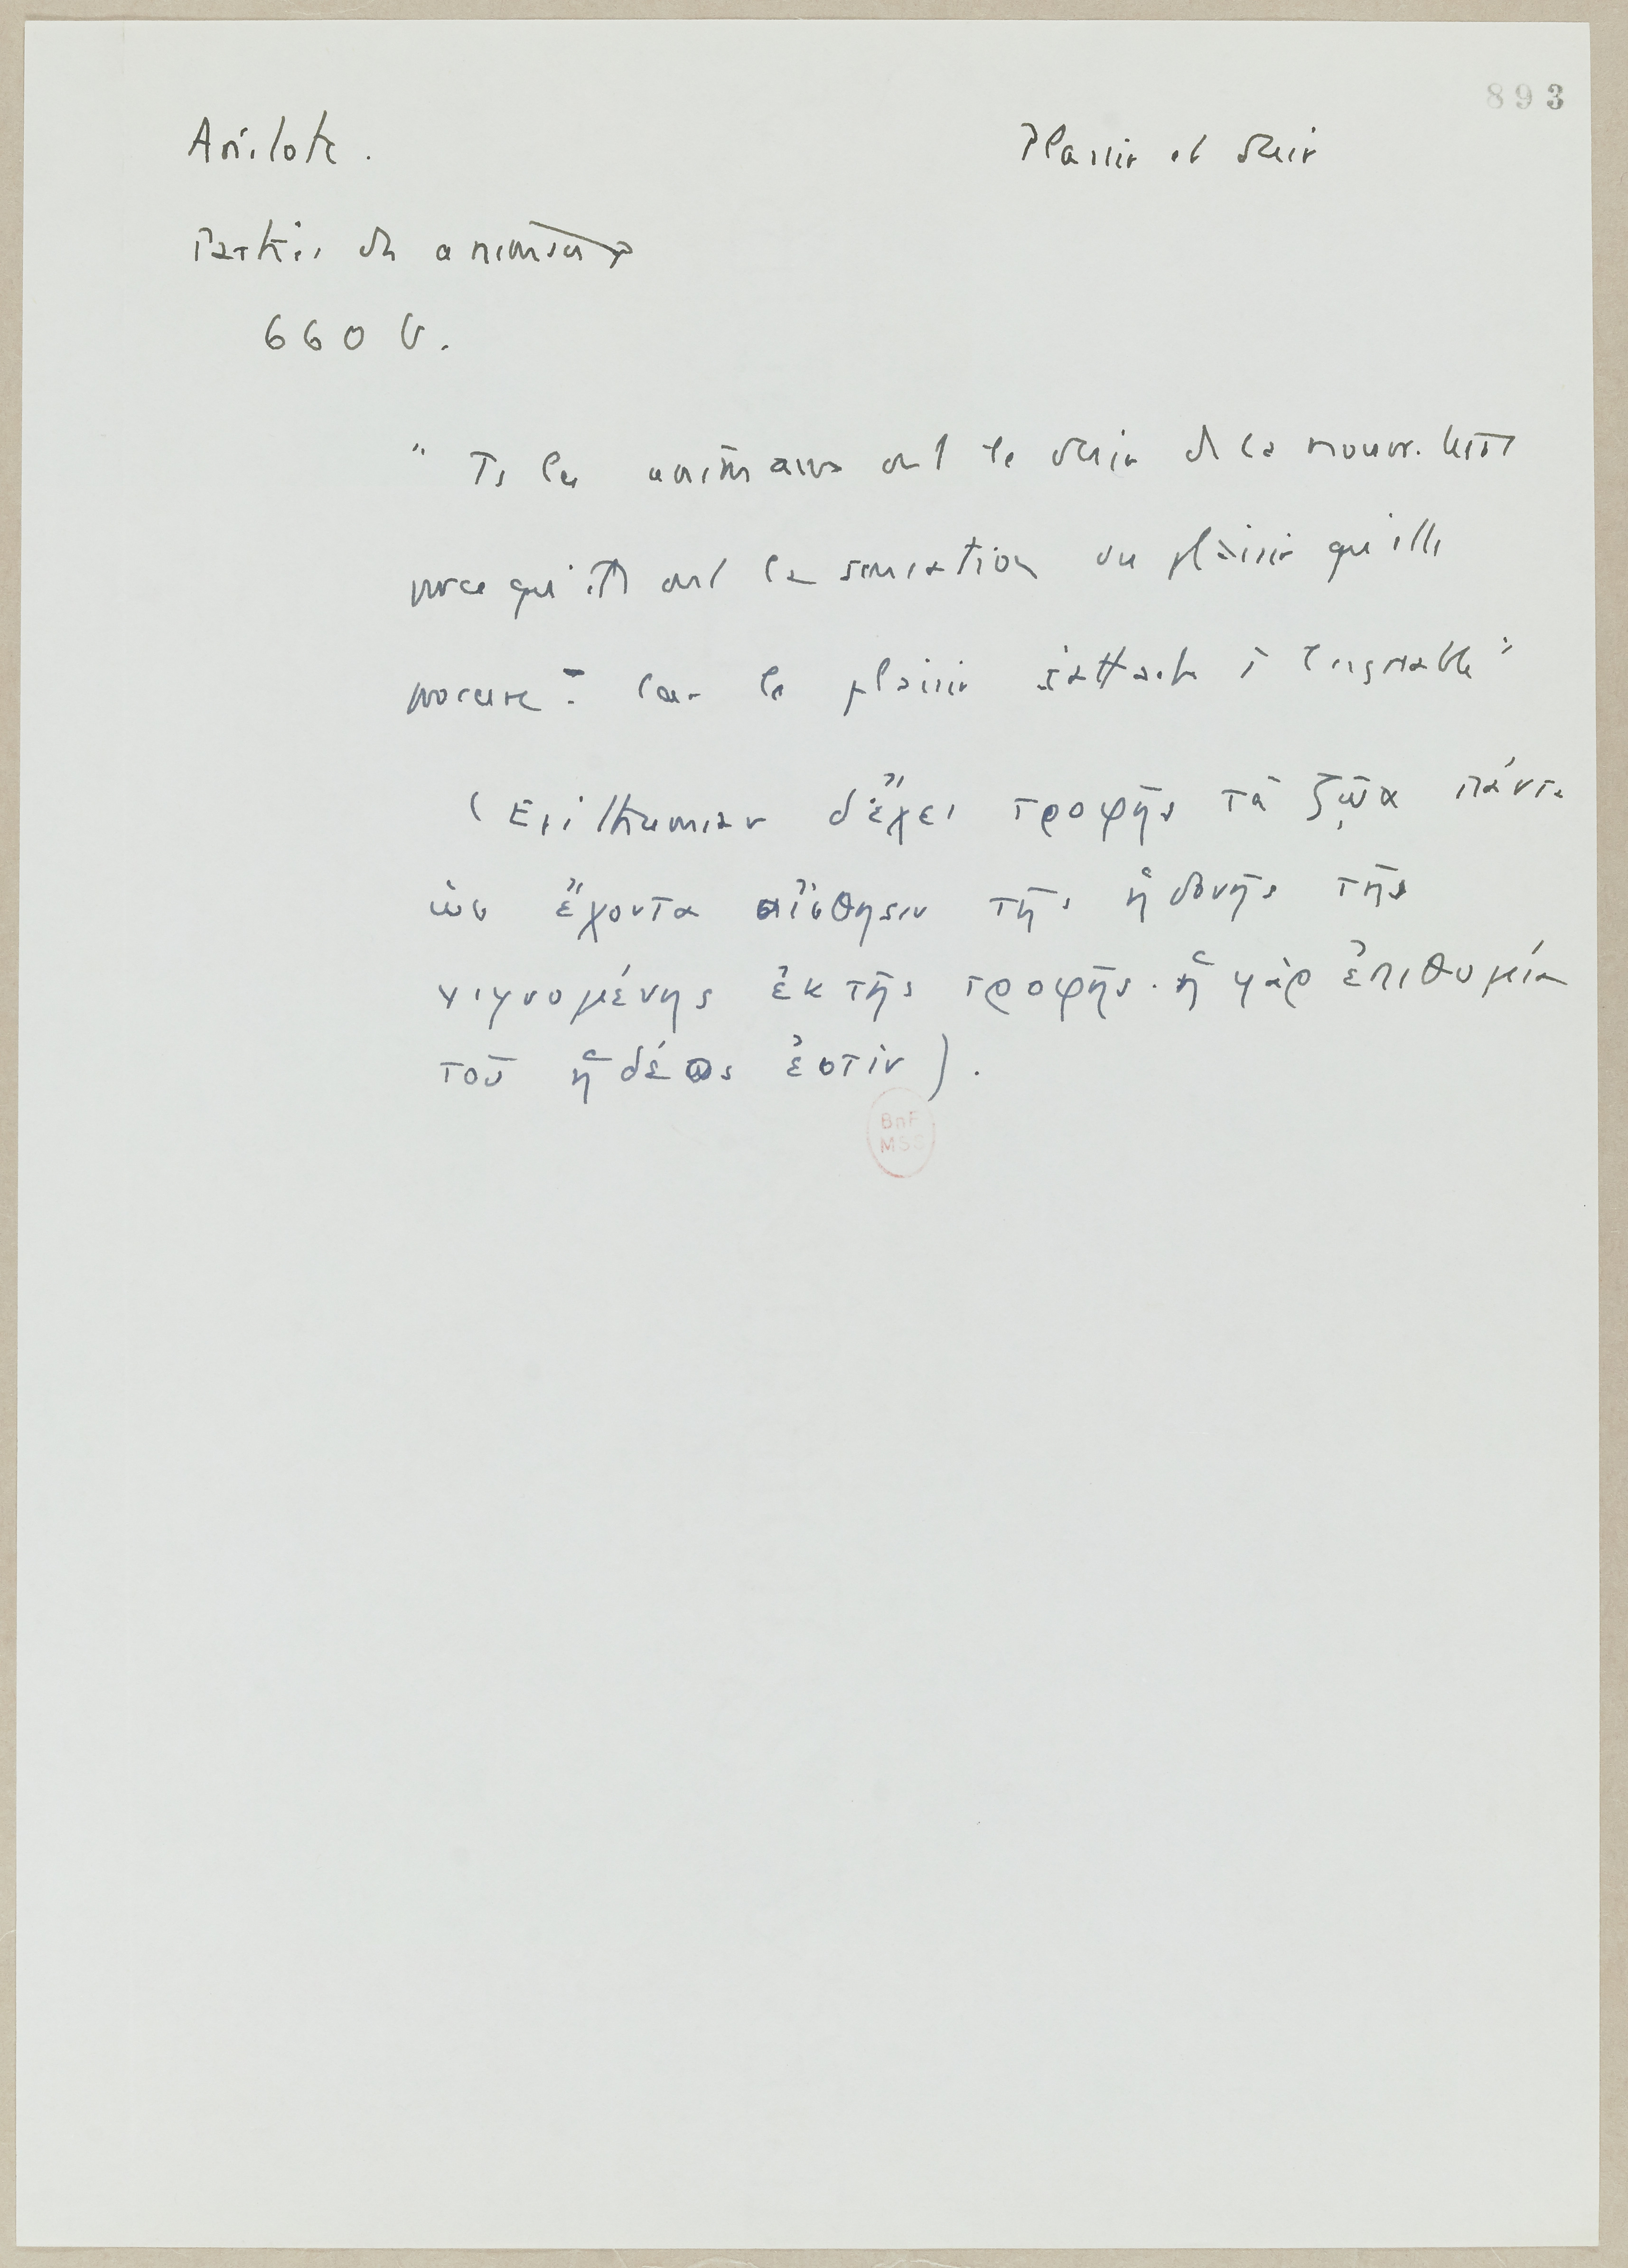 893
Aristote.
Plaisir et désir
Parties des animaux
660 b.
" Ts les animaux ont le désir de la nourriture
parce qu'ils ont la sensation du plaisir qu'elle
procure : car le plaisir s'attache à l'agréable "
(Epithumian δ'ἔχει τροφῆς τὰ ζῷα πάντα
ὡς ἔχοντα αἴσθησιν τῆς ἡδονῆς τῆς
γιγνομένης ἐκ τῆς τροφῆς. ἡ γὰρ ἐπιθυμία
τοῦ ἡδέος ἐστίν).
BnF
MSS